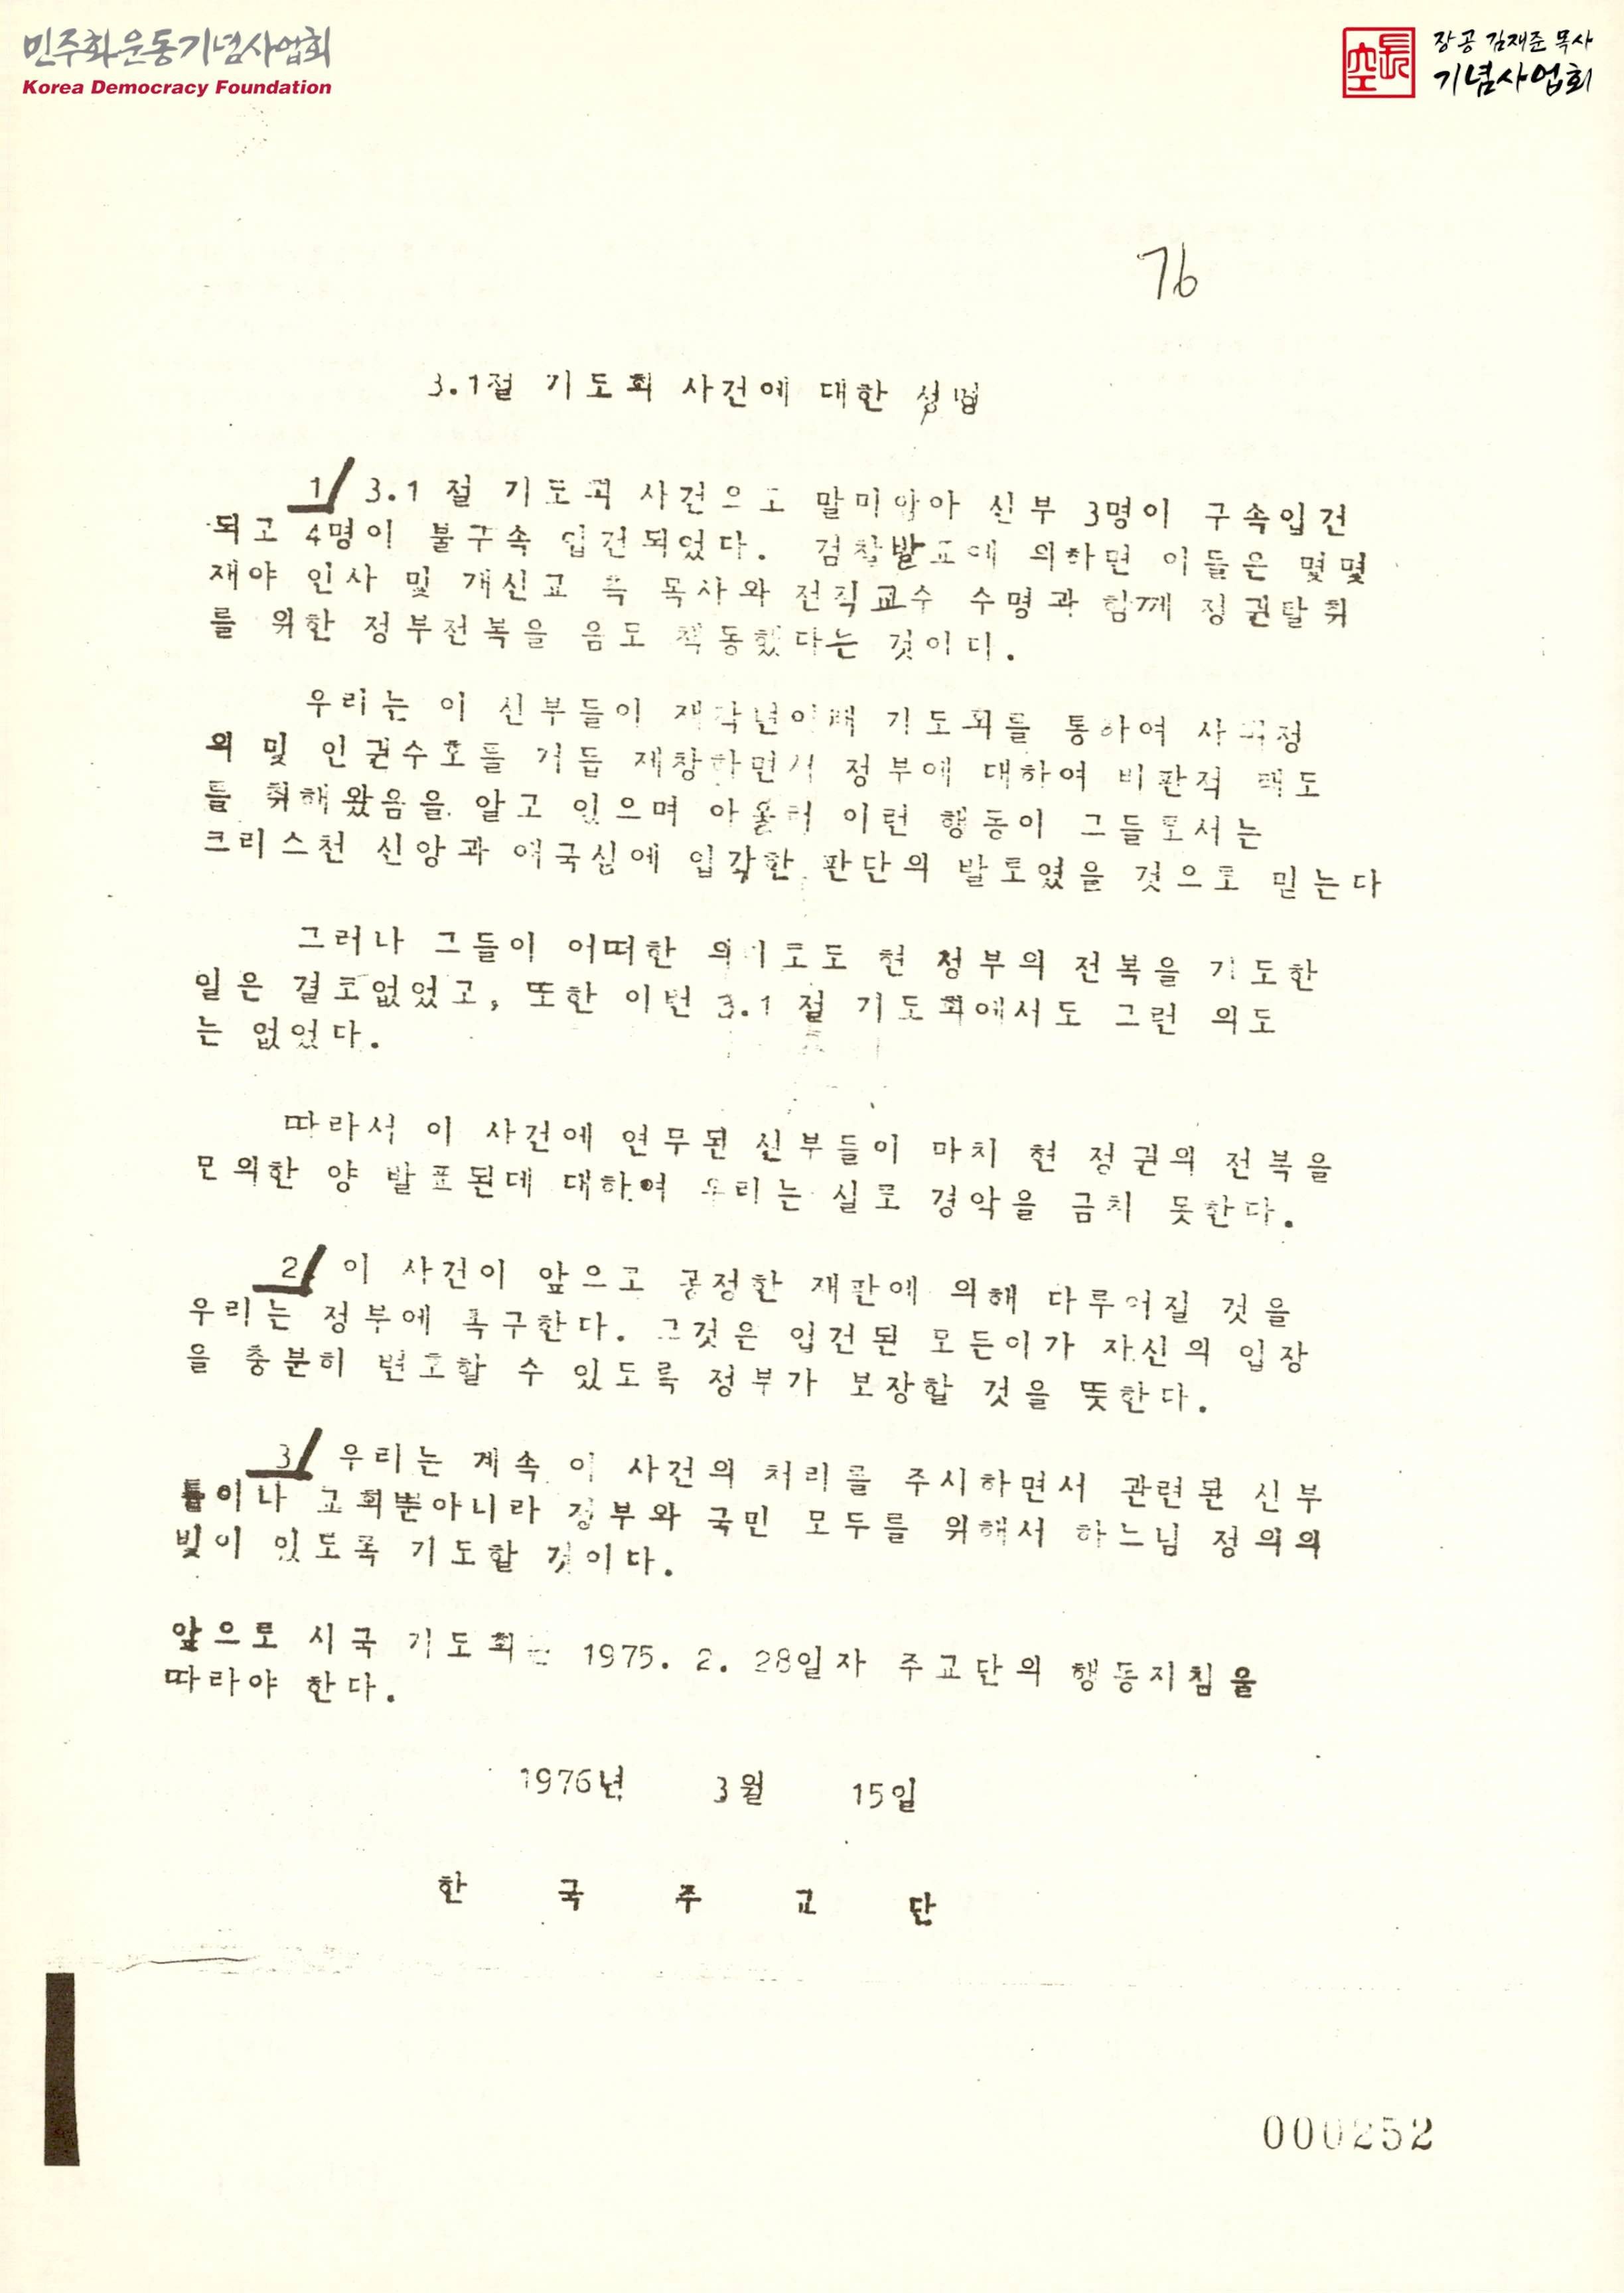 민주화운동기념사업회
Korea Democracy Foundation
長空
장공 김재준 목사
기념사업회
76
3.1절 기도회 사건에 대한 성명
1/ 3.1 절 기도회 사건으로 말미암아 신부 3명이 구속입건
되고 4명이 불구속 입건되었다. 검찰발표에 의하면 이들은 몇몇
재야 인사 및 개신교 측 목사와 전직교수 수명과 함께 정권탈취
를 위한 정부전복을 음모 책동했다는 것이다.
우리는 이 신부들이 재작년이래 기도회를 통하여 사회정
의 및 인권수호를 거듭 제창하면서 정부에 대하여 비판적 태도
를 취해왔음을 알고 있으며 아울러 이런 행동이 그들로서는
크리스천 신앙과 애국심에 입각한 판단의 발로였을 것으로 믿는다
그러나 그들이 어떠한 의미로도 현 정부의 전복을 기도한
일은 결코없었고, 또한 이번 3.1 절 기도회에서도 그런 의도
는 없었다.
따라서 이 사건에 연루된 신부들이 마치 현 정권의 전복을
모의한 양 발표된데 대하여 우리는 실로 경악을 금치 못한다.
2/ 이 사건이 앞으로 공정한 재판에 의해 다루어질 것을
우리는 정부에 촉구한다. 그것은 입건된 모든이가 자신의 입장
을 충분히 변호할 수 있도록 정부가 보장할 것을 뜻한다.
3/ 우리는 계속 이 사건의 처리를 주시하면서 관련된 신부
들이나 교회뿐아니라 정부와 국민 모두를 위해서 하느님 정의의
빛이 있도록 기도할 것이다.
앞으로 시국 기도회는 1975. 2. 28일자 주교단의 행동지침을
따라야 한다.
1976년 3월 15일
한 국 주 교 단
000252